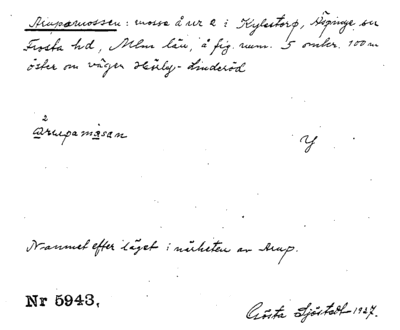 Arupamossen: mossa å nr 2 i Kylestorp, Äspinge sn
Frosta hd, Mlm län, å fig. num. 5 omkr. 100 m
öster om vägen Hörby - Linderöd
2
arupamåsan
Y
Namnet efter läget i närheten av Arup.
Nr 5943,
Gösta Sjöstedt 1927.